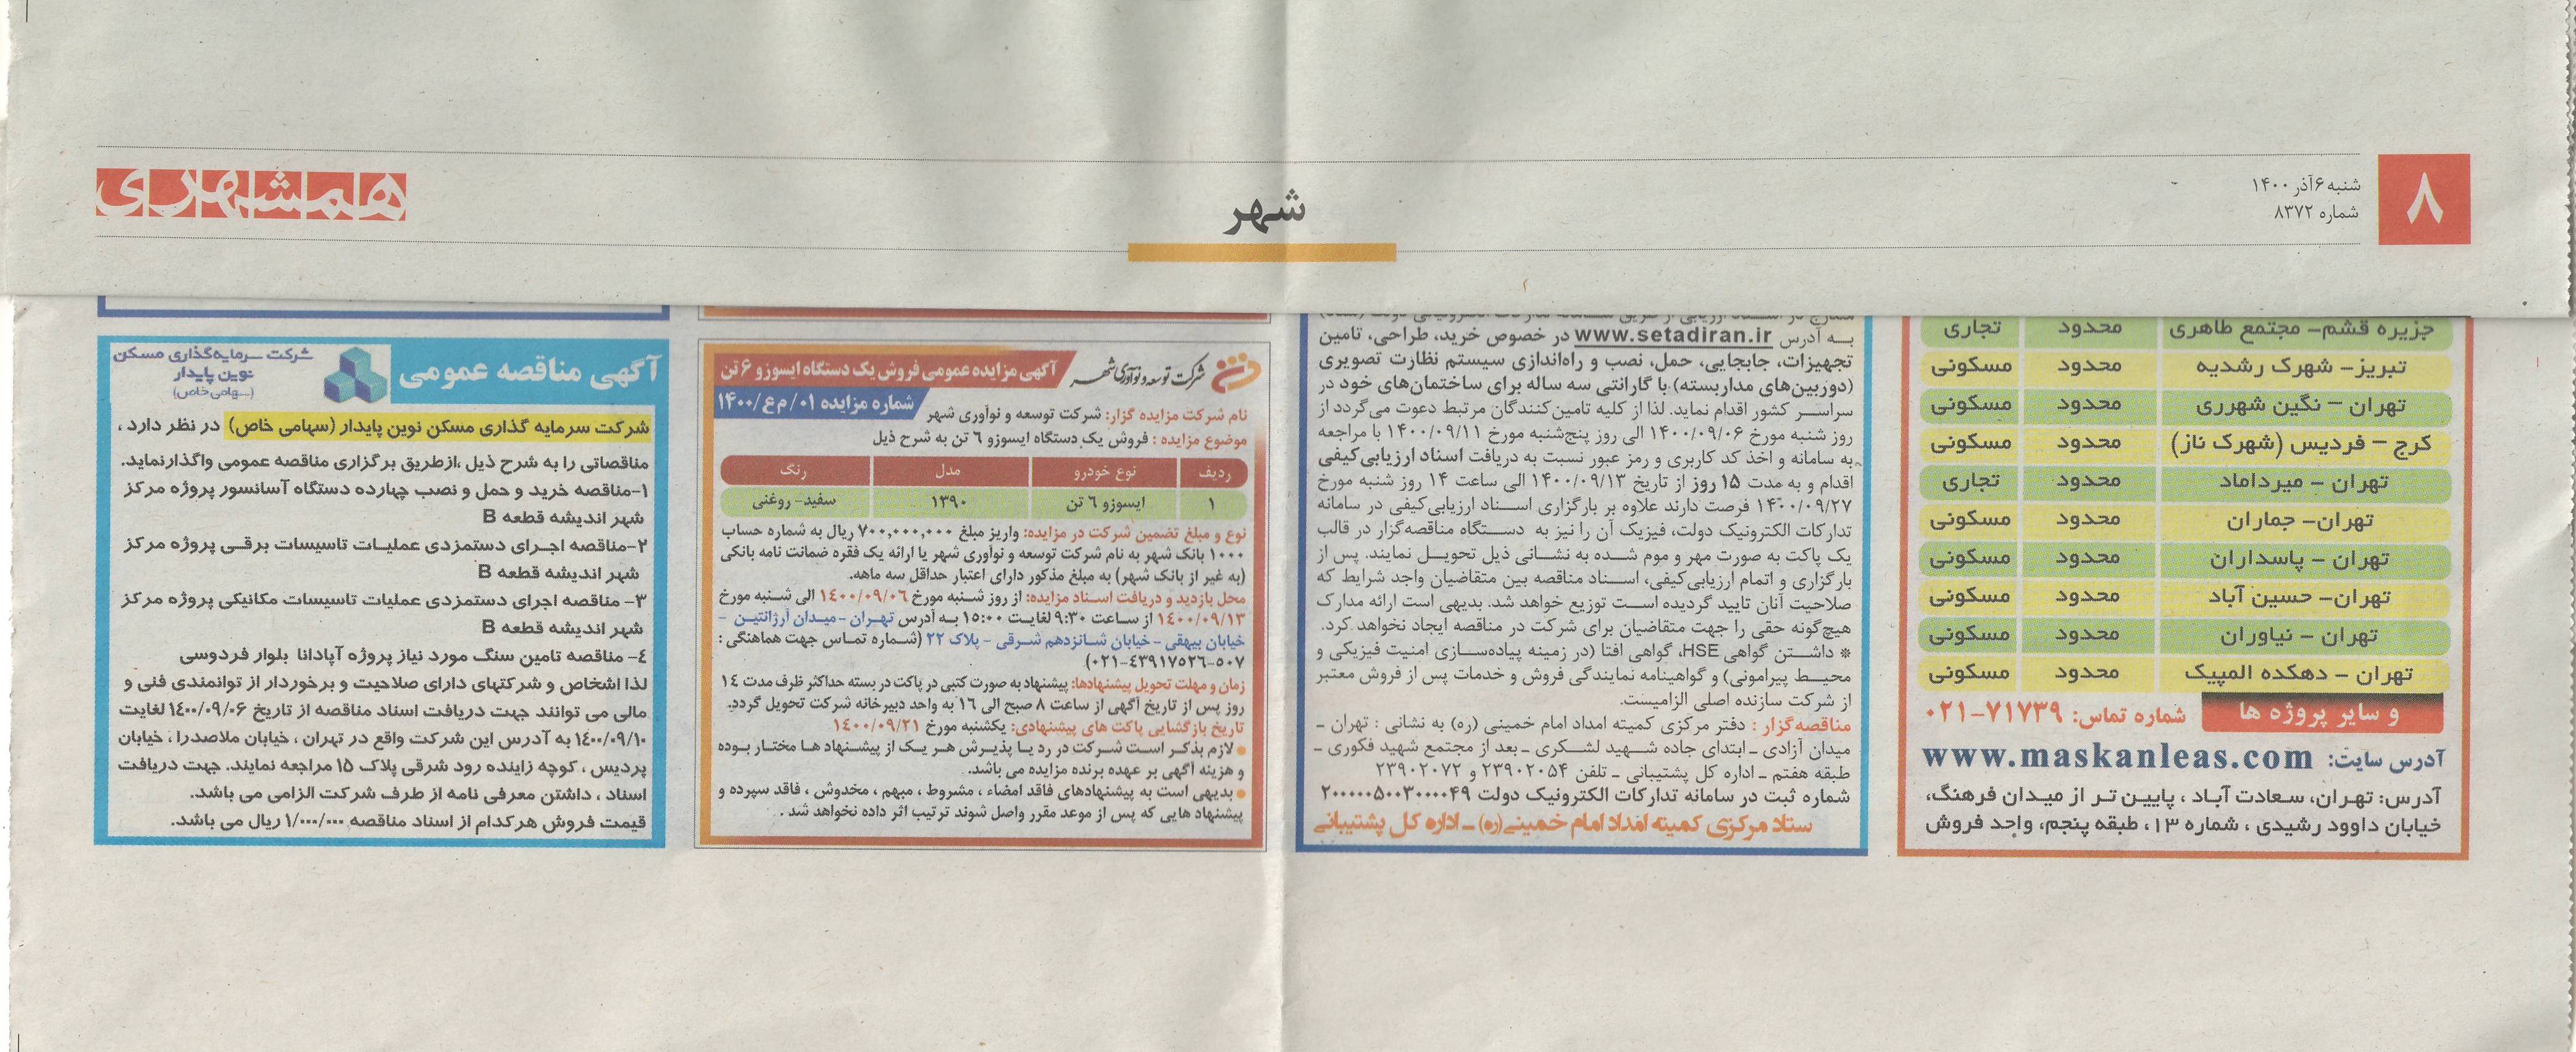 ۸
شنبه ۶ آذر ۱۴۰۰
شماره ۸۳۷۲
شهر
همشهری
جزیره قشم- مجتمع طاهری محدود تجاری
تبریز- شهرک رشدیه محدود مسکونی
تهران - نگین شهرری محدود مسکونی
کرج - فردیس (شهرک ناز) محدود مسکونی
تهران - میرداماد محدود تجاری
تهران- جماران محدود مسکونی
تهران - پاسداران محدود مسکونی
تهران- حسین آباد محدود مسکونی
تهران - نیاوران محدود مسکونی
تهران - دهکده المپیک محدود مسکونی
و سایر پروژه ها شماره تماس: ۷۱۷۳۹-۰۲۱
آدرس سایت: www.maskanleas.com
آدرس: تهران، سعادت آباد ، پایین تر از میدان فرهنگ،
خیابان داوود رشیدی ، شماره ۱۳، طبقه پنجم، واحد فروش
به آدرس www.setadiran.ir در خصوص خرید، طراحی، تامین
تجهیزات، جابجایی، حمل، نصب و راه‌اندازی سیستم نظارت تصویری
(دوربین‌های مداربسته) با گارانتی سه ساله برای ساختمان‌های خود در
سراسر کشور اقدام نماید. لذا از کلیه تامین‌کنندگان مرتبط دعوت می‌گردد از
روز شنبه مورخ ۱۴۰۰/۰۹/۰۶ الی روز پنج‌شنبه مورخ ۱۴۰۰/۰۹/۱۱ با مراجعه
به سامانه و اخذ کد کاربری و رمز عبور نسبت به دریافت اسناد ارزیابی‌کیفی
اقدام و به مدت ۱۵ روز از تاریخ ۱۴۰۰/۰۹/۱۳ الی ساعت ۱۴ روز شنبه مورخ
۱۴۰۰/۰۹/۲۷ فرصت دارند علاوه بر بارگزاری اسناد ارزیابی‌کیفی در سامانه
تدارکات الکترونیک دولت، فیزیک آن را نیز به دستگاه مناقصه‌گزار در قالب
یک پاکت به صورت مهر و موم شده به نشانی ذیل تحویل نمایند. پس از
بارگزاری و اتمام ارزیابی‌کیفی، اسناد مناقصه بین متقاضیان واجد شرایط که
صلاحیت آنان تایید گردیده است توزیع خواهد شد. بدیهی است ارائه مدارک
هیچ‌گونه حقی را جهت متقاضیان برای شرکت در مناقصه ایجاد نخواهد کرد.
* داشتن گواهی HSE، گواهی افتا (در زمینه پیاده‌سازی امنیت فیزیکی و
محیط پیرامونی) و گواهینامه نمایندگی فروش و خدمات پس از فروش معتبر
از شرکت سازنده اصلی الزامیست.
مناقصه‌گزار : دفتر مرکزی کمیته امداد امام خمینی (ره) به نشانی : تهران ـ
میدان آزادی ـ ابتدای جاده شهید لشکری ـ بعد از مجتمع شهید فکوری ـ
طبقه هفتم ـ اداره کل پشتیبانی ـ تلفن ۲۳۹۰۲۰۵۴ و ۲۳۹۰۲۰۷۲
شماره ثبت در سامانه تدارکات الکترونیک دولت ۲۰۰۰۰۰۵۰۰۳۰۰۰۰۴۹
ستاد مرکزی کمیته امداد امام خمینی(ره) ـ اداره کل پشتیبانی
شرکت توسعه و نوآوری شهر
آگهی مزایده عمومی فروش یک دستگاه ایسوزو ۶ تن
شماره مزایده ۰۱/م ع/۱۴۰۰
نام شرکت مزایده گزار: شرکت توسعه و نوآوری شهر
موضوع مزایده : فروش یک دستگاه ایسوزو ۶ تن به شرح ذیل
ردیف نوع خودرو مدل رنگ
۱ ایسوزو ۶ تن ۱۳۹۰ سفید- روغنی
نوع و مبلغ تضمین شرکت در مزایده: واریز مبلغ ۷۰۰,۰۰۰,۰۰۰ ریال به شماره حساب
۱۰۰۰ بانک شهر به نام شرکت توسعه و نوآوری شهر یا ارائه یک فقره ضمانت نامه بانکی
(به غیر از بانک شهر) به مبلغ مذکور دارای اعتبار حداقل سه ماهه.
محل بازدید و دریافت اسناد مزایده: از روز شنبه مورخ ۱۴۰۰/۰۹/۰۶ الی شنبه مورخ
۱۴۰۰/۰۹/۱۳ از ساعت ۹:۳۰ لغایت ۱۵:۰۰ به آدرس تهران - میدان آرژانتین -
خیابان بیهقی - خیابان شانزدهم شرقی - پلاک ۲۲ (شماره تماس جهت هماهنگی :
۵۰۷-۴۳۹۱۷۵۲۶-۰۲۱)
زمان و مهلت تحویل پیشنهادها: پیشنهاد به صورت کتبی در پاکت در بسته حداکثر ظرف مدت ۱۴
روز پس از تاریخ آگهی از ساعت ۸ صبح الی ۱۶ به واحد دبیرخانه شرکت تحویل گردد.
تاریخ بازگشایی پاکت های پیشنهادی: یکشنبه مورخ ۱۴۰۰/۰۹/۲۱
● لازم بذکر است شرکت در رد یا پذیرش هر یک از پیشنهاد ها مختار بوده
و هزینه آگهی بر عهده برنده مزایده می باشد.
● بدیهی است به پیشنهادهای فاقد امضاء ، مشروط ، مبهم ، مخدوش ، فاقد سپرده و
پیشنهاد هایی که پس از موعد مقرر واصل شوند ترتیب اثر داده نخواهد شد .
آگهی مناقصه عمومی
شرکت سرمایه‌گذاری مسکن
نوین پایدار
(سهامی خاص)
شرکت سرمایه گذاری مسکن نوین پایدار (سهامی خاص) در نظر دارد ،
مناقصاتی را به شرح ذیل ،ازطریق برگزاری مناقصه عمومی واگذارنماید.
۱-مناقصه خرید و حمل و نصب چهارده دستگاه آسانسور پروژه مرکز
شهر اندیشه قطعه B
۲-مناقصه اجرای دستمزدی عملیات تاسیسات برقی پروژه مرکز
شهر اندیشه قطعه B
۳- مناقصه اجرای دستمزدی عملیات تاسیسات مکانیکی پروژه مرکز
شهر اندیشه قطعه B
۴- مناقصه تامین سنگ مورد نیاز پروژه آپادانا بلوار فردوسی
لذا اشخاص و شرکتهای دارای صلاحیت و برخوردار از توانمندی فنی و
مالی می توانند جهت دریافت اسناد مناقصه از تاریخ ۱۴۰۰/۰۹/۰۶ لغایت
۱۴۰۰/۰۹/۱۰ به آدرس این شرکت واقع در تهران ، خیابان ملاصدرا ، خیابان
پردیس ، کوچه زاینده رود شرقی پلاک ۱۵ مراجعه نمایند. جهت دریافت
اسناد ، داشتن معرفی نامه از طرف شرکت الزامی می باشد.
قیمت فروش هرکدام از اسناد مناقصه ۱/۰۰۰/۰۰۰ ریال می باشد.